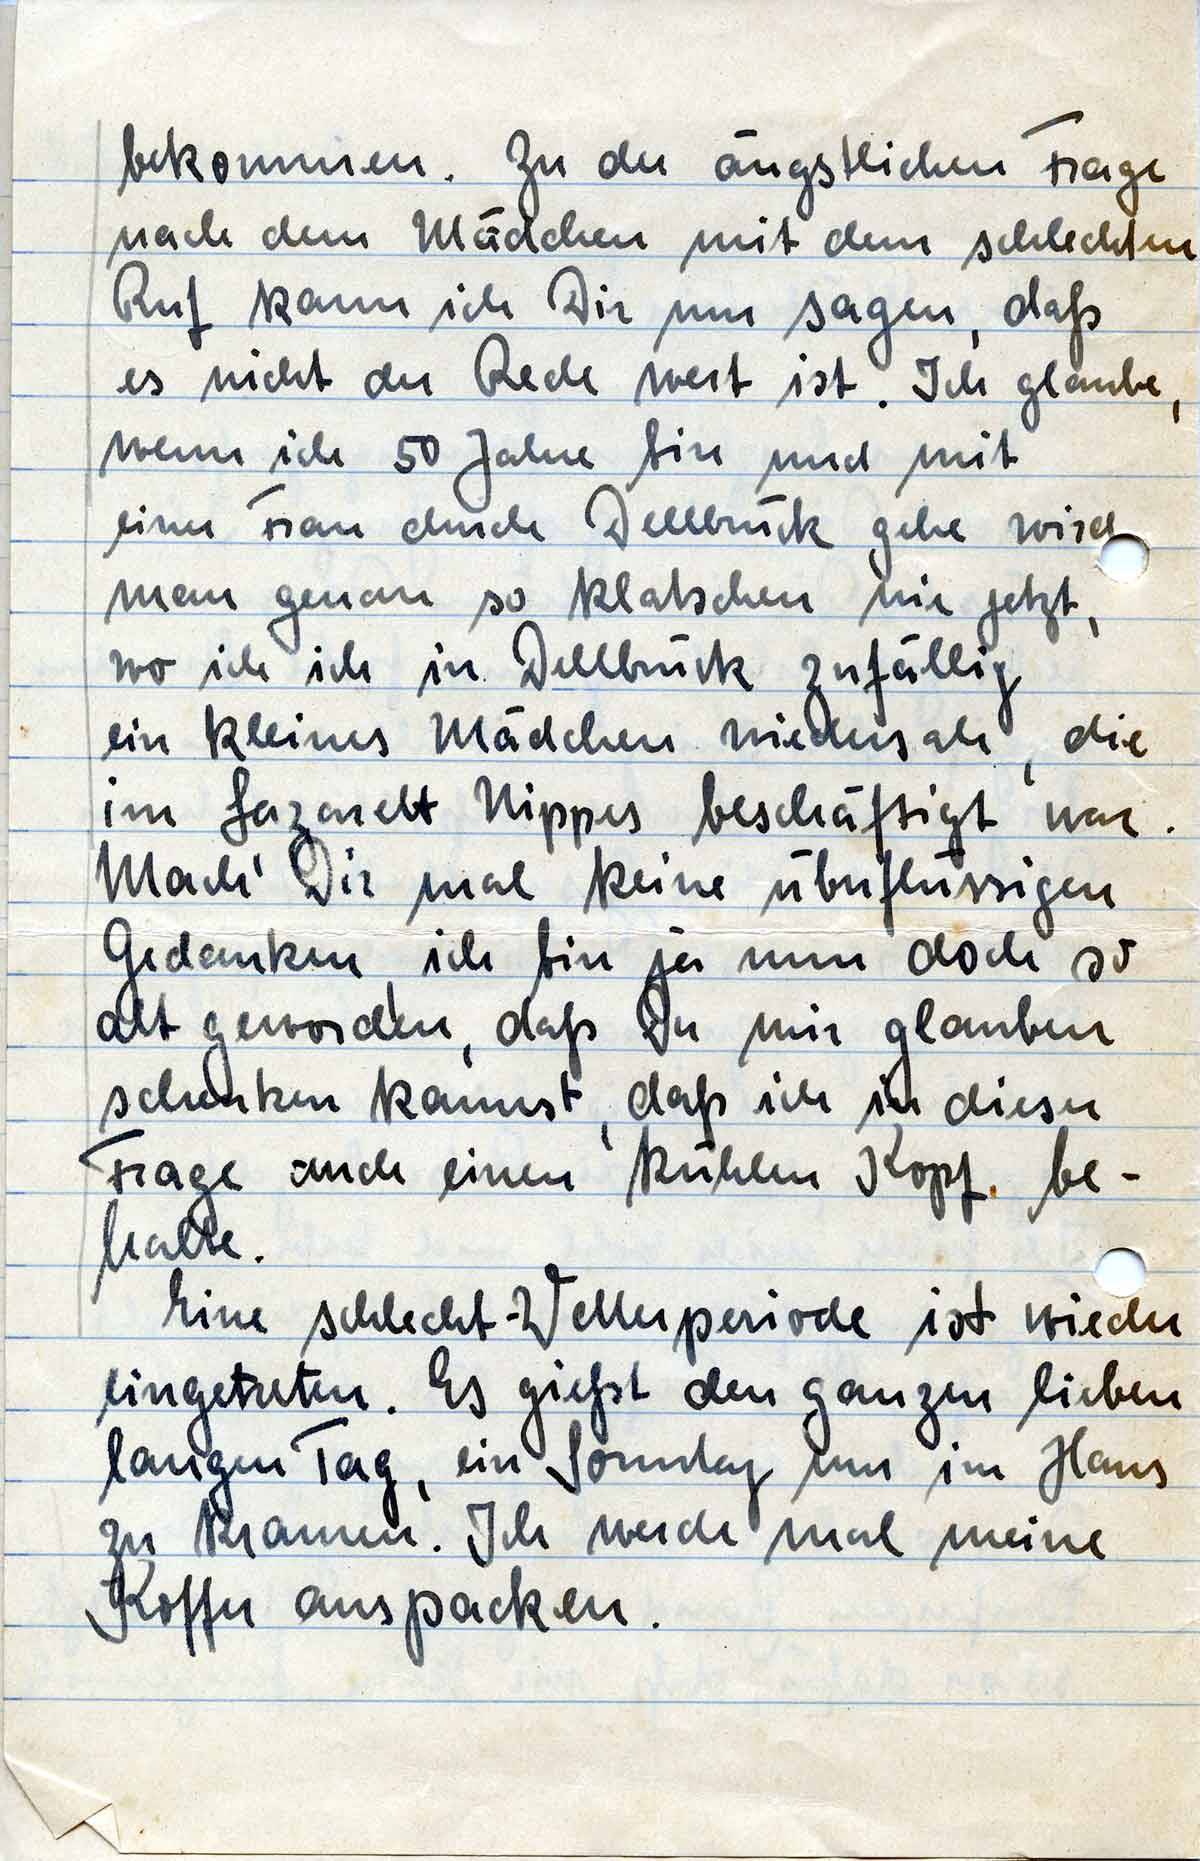 bekommen. Zu der ängstlichen Frage
nach dem Mädchen mit dem schlechten
Ruf kann ich Dir nur sagen, daß
es nicht der Rede wert ist. Ich glaube,
wenn ich 50 Jahre bin und mit
einer Frau durch Dellbrück gehe wird
man genau so klatschen wie jetzt,
wo ich ich in Dellbrück zufällig
ein kleines Mädchen wiedersah, die
im Lazarett Nippes beschäftigt war.
Mach' Dir mal keine überflüssigen
Gedanken ich bin ja nun doch so
alt geworden, daß Du mir glauben
schenken kannst, daß ich in dieser
Frage auch einen kühlen Kopf be-
halte.
Eine schlecht-Wetterperiode ist wieder
eingetreten. Es gießt den ganzen lieben
langen Tag, ein Sonntag um im Haus
zu kramen. Ich werde mal meine
Koffer auspacken.